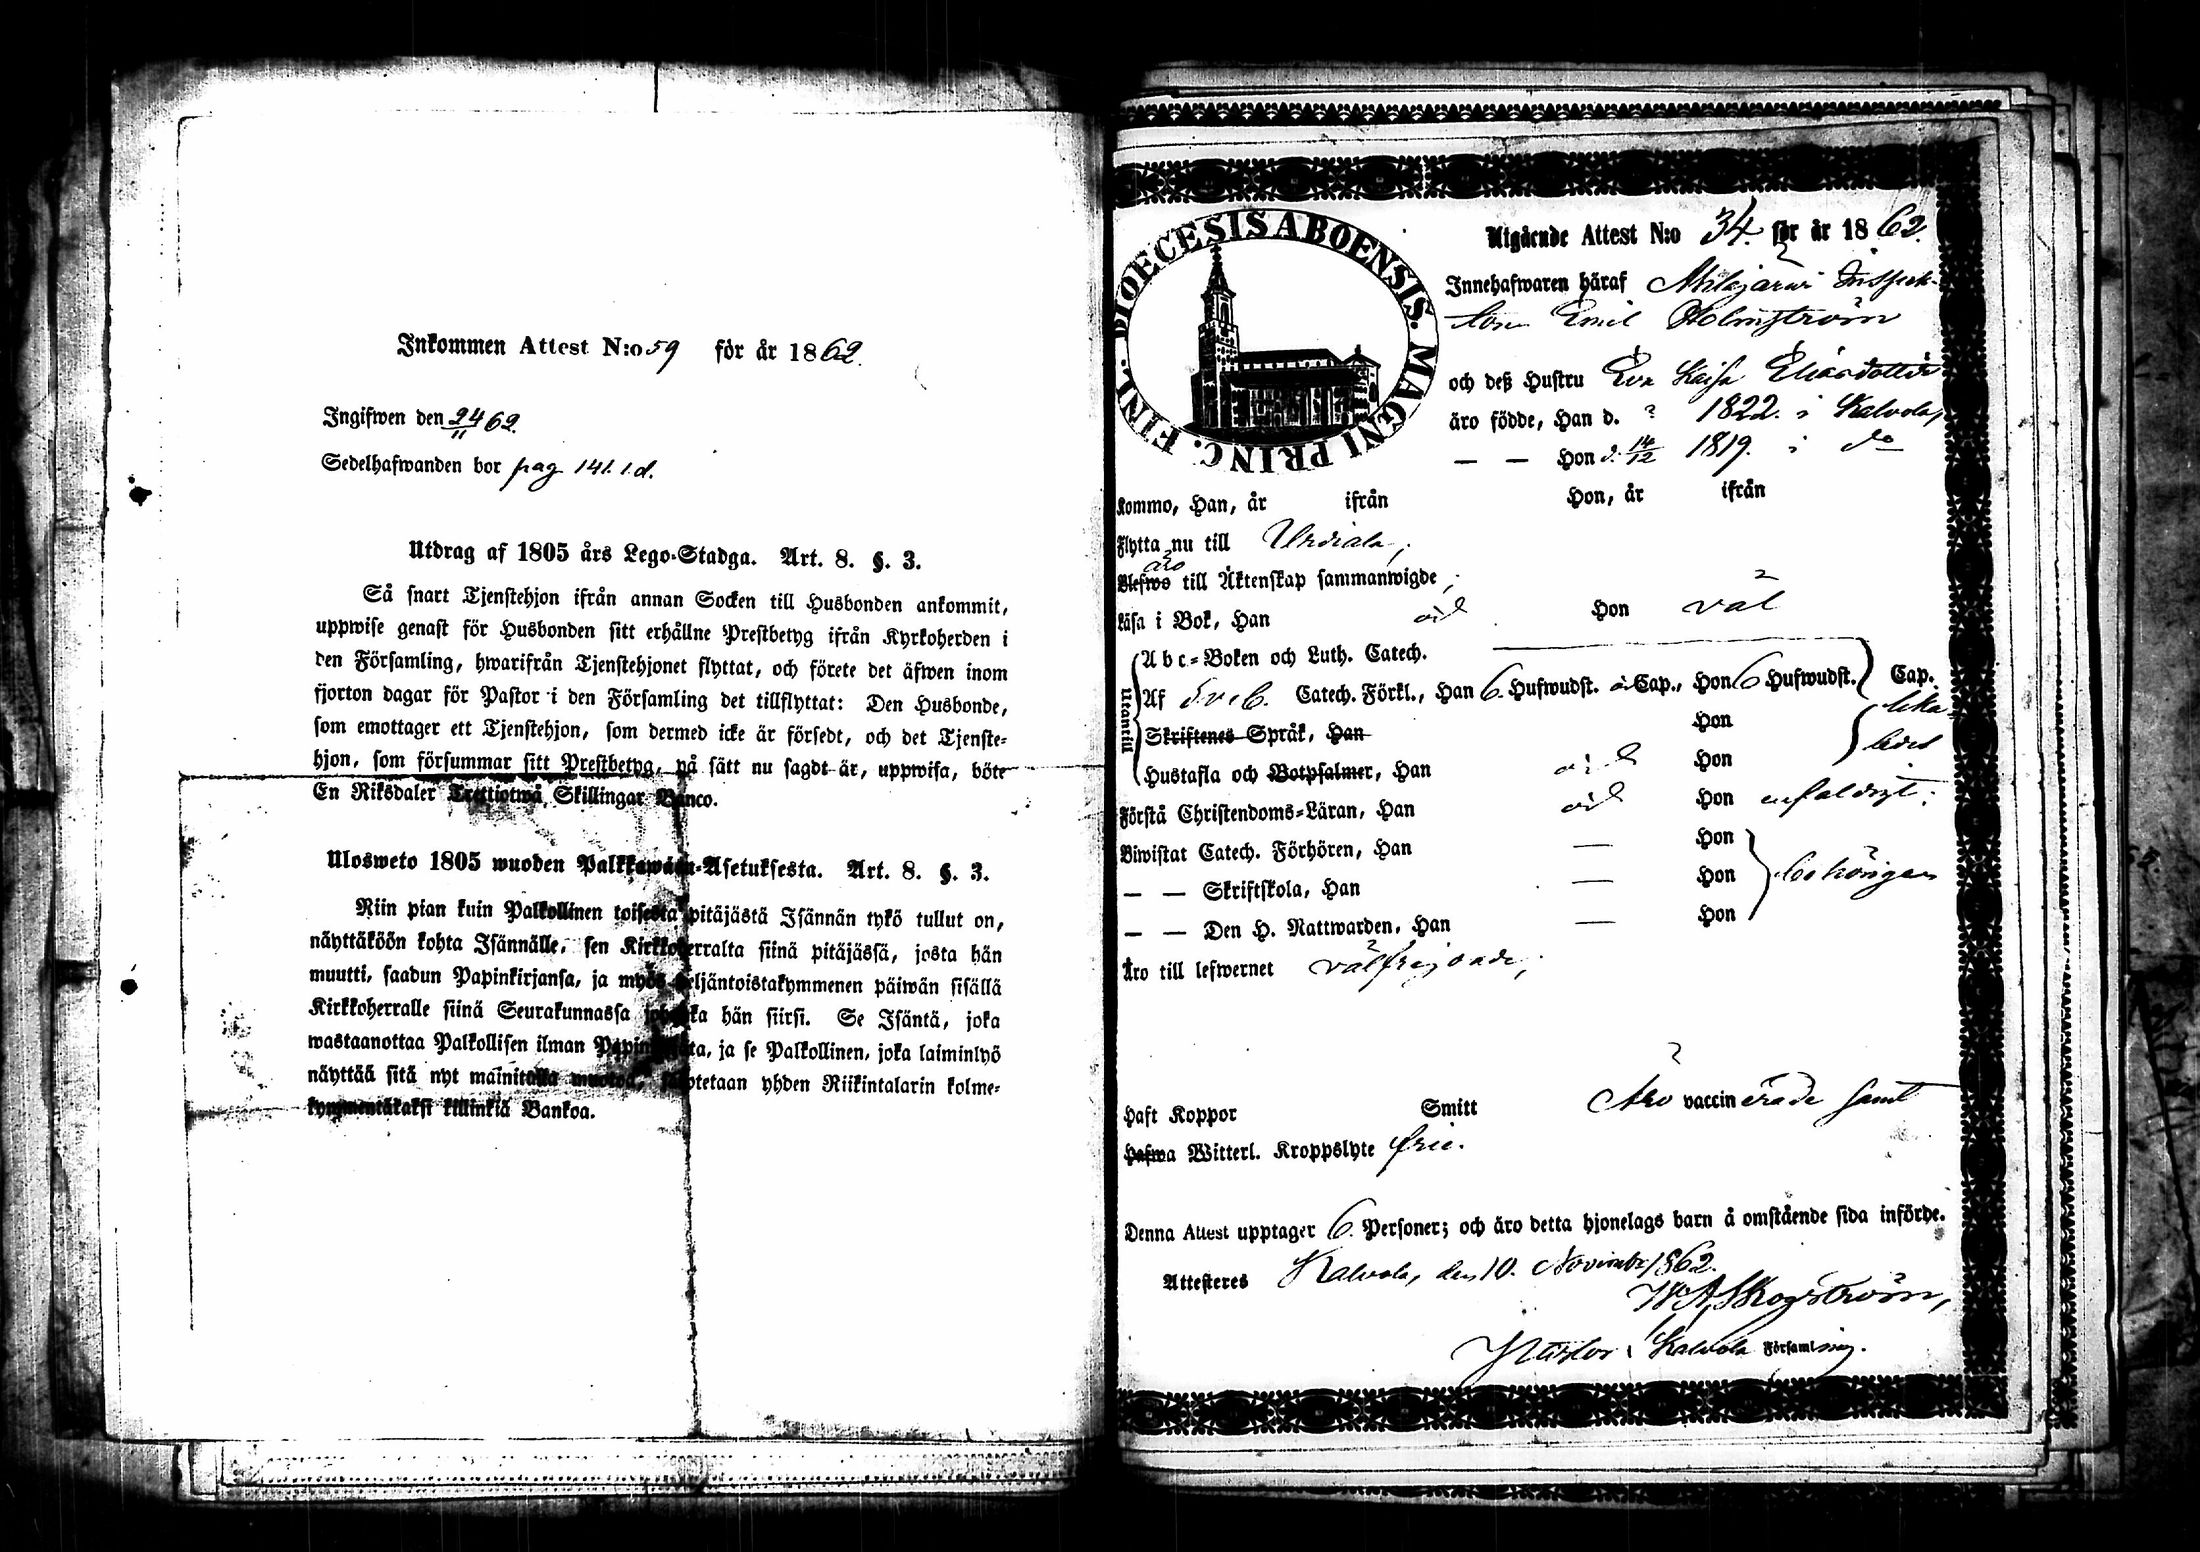 Inkommen Attest N:o 59 för år 1862.
Ingifwen den 24/11 62.
Sedelhafwanden bor pag 141. l.d.
Utdrag af 1805 års Lego-Stadga. Art. 8. §. 3.
Så snart Tjenstehjon ifrån annan Socken till Husbonden ankommit,
uppwise genast för Husbonden sitt erhållne Prestbetyg ifrån Kyrkoherden i
den Församling, hwarifrån Tjenstehjonet flyttat, och förete det äfwen inom
fjorton dagar för Pastor i den Församling det tillflyttat: Den Husbonde,
som emottager ett Tjenstehjon, som dermed icke är försedt, och det Tjenste-
hjon, som försummar sitt Prestbetyg, på sätt nu sagdt är, uppwisa, böte
En Riksdaler Trettiotwå Skillingar Banco.
Ulosweto 1805 wuoden Palkkawäen-Asetuksesta. Art. 8. §. 3.
Niin pian kuin Palkollinen toisesta pitäjästä Isännän tykö tullut on,
näyttäköön kohta Isännälle, sen Kirkkoherralta siinä pitäjässä, josta hän
muutti, saadun Papinkirjansa, ja myös neljäntoistakymmenen päiwän sisällä
Kirkkoherralle siinä Seurakunnassa johonka hän siirsi. Se Isäntä, joka
wastaanottaa Palkollisen ilman Papinkirjata, ja se Palkollinen, joka laiminlyö
näyttää sitä nyt mainitulla muotoa, sakotetaan yhden Riikintalarin kolme-
kymmentäkaksi killinkiä Bankoa.
DIOECESIS ABOENSIS. MAGNI PRINC. FINL.
Utgående Attest N:o 34. för år 1862.
Innehafwaren häraf Inspek-
torn Emil Holmström
och deß Hustru Eva Kaisa Eliasdotter
äro födde, Han d. ? 1822. i Kalvola,
— — Hon d. 14/12 1819. i do
Kommo, Han, år ifrån Hon, år ifrån
Flytta nu till Urdiala,
äro
Blefwo till Äktenskap sammanwigde,
Läsa i Bok, Han Hon väl
Utantill
Abc-Boken och Luth. Catech.
Af Sveb. Catech. Förkl., Han 6. Hufwudst. Cap., Hon 6 Hufwudst. Cap.
Skriftenes Språk, Han Hon lika-
ledes
Hustafla och Botpsalmer, Han Hon
Förstå Christendoms-Läran, Han Hon enfaldigt;
Biwistat Catech. Förhören, Han — Hon
— — Skriftskola, Han — Hon behörigen
— — Den H. Nattwarden, Han — Hon
Äro till lefwernet välfrejdade;
Haft Koppor Smitt Äro vaccinerade samt
Hafwa Witterl. Kroppslyte frie.
Denna Attest upptager 6. Personer; och äro detta hjonelags barn å omstående sida införde.
Attesteres Kalvola, den 10. November 1862.
Skogström,
Pastor i Kalvola Församling.